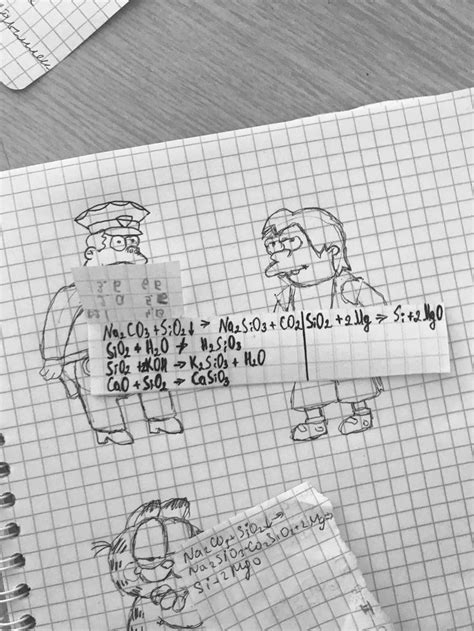 Na₂CO₃+SiO₂↓ → Na₂SiO₃+CO₂ | SiO₂+2Mg → Si+2MgO
SiO₂+H₂O ≠ H₂SiO₃
SiO₂+2KOH → K₂SiO₃+H₂O
CaO+SiO₂ → CaSiO₃
Na₂CO₃+SiO₂↓→
Na₂SiO₃+CO₂SiO₂+2Mg→
Si+2MgO